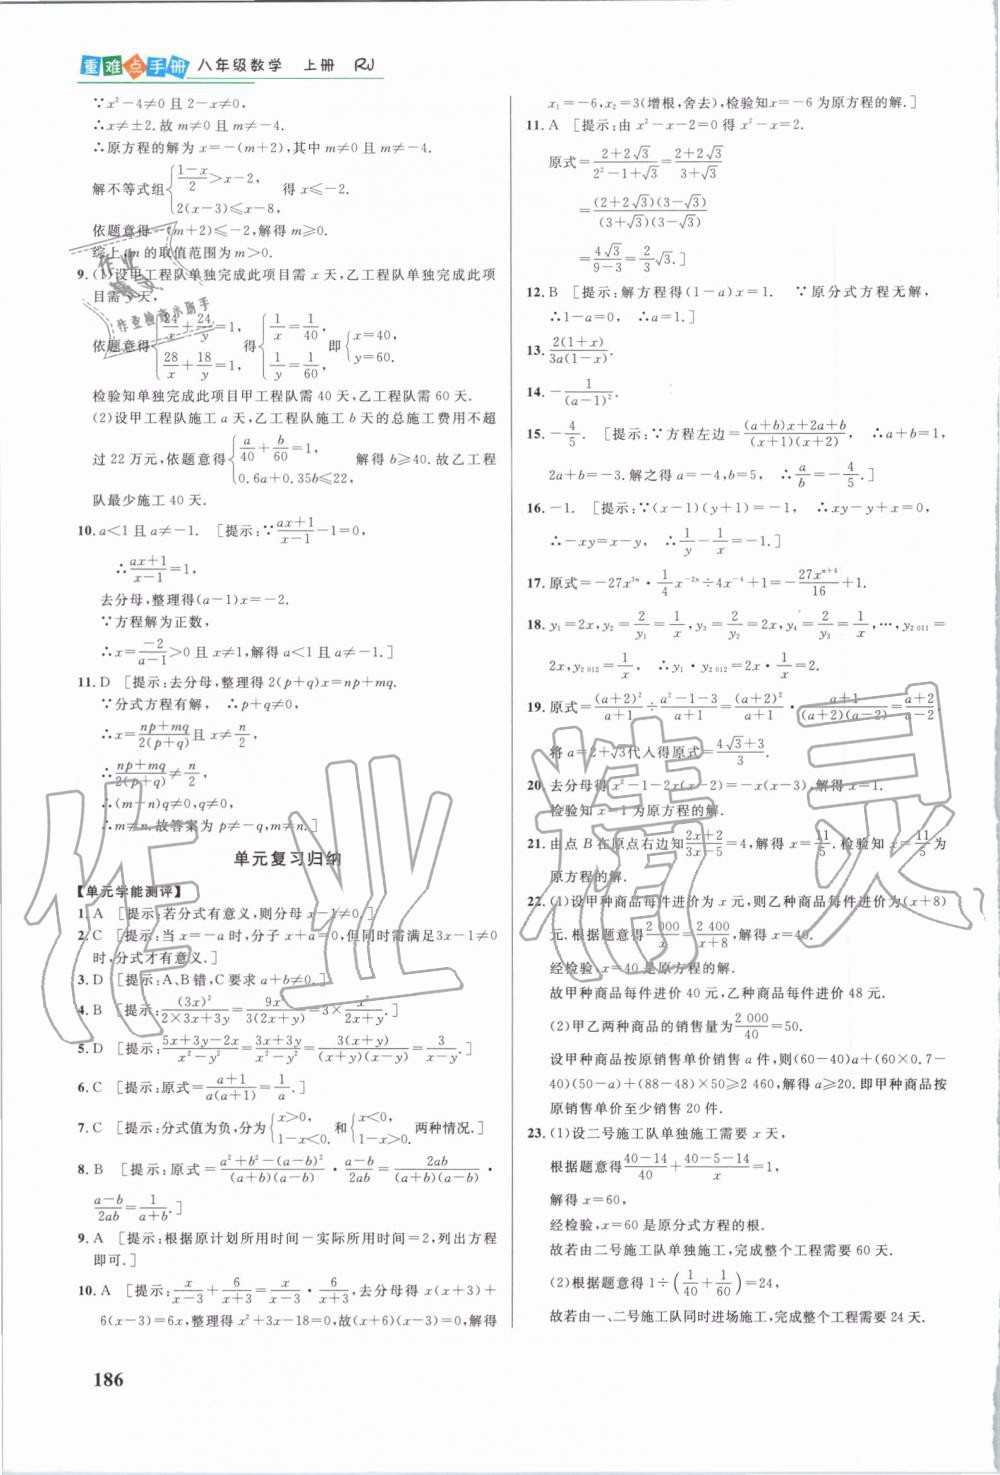 重难点手册 八年级数学 上册 RJ
∵x²－4≠0且2－x≠0,
∴x≠±2.故m≠0且m≠－4.
∴原方程的解为x＝－(m＋2),其中m≠0且m≠－4.
解不等式组{(1－x)/2＞x－2, 2(x－3)≤x－8, 得x≤－2.
依题意得－(m＋2)≤－2,解得m≥0.
综上,m的取值范围为m＞0.
9.(1)设甲工程队单独完成此项目需x天,乙工程队单独完成此项
目需y天,
依题意得{24/x＋24/y＝1, 28/x＋18/y＝1, 得{1/x＝1/40, 1/y＝1/60, 即{x＝40, y＝60.
检验知单独完成此项目甲工程队需40天,乙工程队需60天.
(2)设甲工程队施工a天,乙工程队施工b天的总施工费用不超
过22万元,依题意得{a/40＋b/60＝1, 0.6a＋0.35b≤22, 解得b≥40.故乙工程
队最少施工40天.
10.a＜1且a≠－1. [提示:∵(ax＋1)/(x－1)－1＝0,
∴(ax＋1)/(x－1)＝1,
去分母,整理得(a－1)x＝－2.
∵方程解为正数,
∴x＝－2/(a－1)＞0且x≠1,解得a＜1且a≠－1.]
11.D [提示:去分母,整理得2(p＋q)x＝np＋mq.
∵分式方程有解,∴p＋q≠0,
∴x＝(np＋mq)/2(p＋q)且x≠n/2,
∴(np＋mq)/2(p＋q)≠n/2,
∴(m－n)q≠0,q≠0,
∴m≠n.故答案为p≠－q,m≠n.]
单元复习归纳
【单元学能测评】
1.A [提示:若分式有意义,则分母x－1≠0.]
2.C [提示:当x＝－a时,分子x＋a＝0,但同时需满足3x－1≠0
时,分式才有意义.]
3.D [提示:A、B错,C要求a＋b≠0.]
4.B [提示:(3x)²/(2×3x＋3y)＝9x²/3(2x＋y)＝3×x²/(2x＋y).]
5.D [提示:(5x＋3y－2x)/(x²－y²)＝(3x＋3y)/(x²－y²)＝3(x＋y)/(x＋y)(x－y)＝3/(x－y).]
6.C [提示:原式＝(a＋1)/a(a＋1)＝1/a.]
7.C [提示:分式值为负,分为{x＞0, 1－x＜0. 和{x＜0, 1－x＞0. 两种情况.]
8.B [提示:原式＝(a²＋b²－(a－b)²)/(a＋b)(a－b)·(a－b)/2ab＝2ab/(a＋b)(a－b)·
(a－b)/2ab＝1/(a＋b).]
9.A [提示:根据原计划所用时间－实际所用时间＝2,列出方程
即可.]
10.A [提示:x/(x－3)＋6/(x＋3)＝x/(x－3)·6/(x＋3),去分母得x(x＋3)＋
6(x－3)＝6x,整理得x²＋3x－18＝0,故(x＋6)(x－3)＝0,解得
x₁＝－6,x₂＝3(增根,舍去),检验知x＝－6为原方程的解.]
11.A [提示:由x²－x－2＝0得x²－x＝2.
原式＝(2＋2√3)/(2²－1＋√3)＝(2＋2√3)/(3＋√3)
＝(2＋2√3)(3－√3)/(3＋√3)(3－√3)
＝4√3/(9－3)＝2/3√3.]
12.B [提示:解方程得(1－a)x＝1. ∵原分式方程无解,
∴1－a＝0, ∴a＝1.]
13.2(1＋x)/3a(1－x).
14.－1/(a－1)².
15.－4/5. [提示:∵方程左边＝((a＋b)x＋2a＋b)/(x＋1)(x＋2), ∴a＋b＝1,
2a＋b＝－3.解之得a＝－4,b＝5, ∴a/b＝－4/5.]
16.－1. [提示:∵(x－1)(y＋1)＝－1, ∴xy－y＋x＝0,
∴－xy＝x－y, ∴1/y－1/x＝－1.]
17.原式＝－27x³ⁿ·1/4x⁻²ⁿ÷4x⁻⁴＋1＝－27xⁿ⁺⁴/16＋1.
18.y₁＝2x,y₂＝2/y₁＝1/x,y₃＝2/y₂＝2x,y₄＝2/y₃＝1/x,…,y₂ ₀₁₁＝
2x,y₂ ₀₁₂＝1/x, ∴y₁·y₂ ₀₁₂＝2x·1/x＝2.
19.原式＝(a＋2)²/(a＋1)÷(a²－1－3)/(a＋1)＝(a＋2)²/(a＋1)·(a＋1)/(a＋2)(a－2)＝(a＋2)/(a－2).
将a＝2＋√3代入得原式＝(4√3＋3)/3.
20.去分母得x²－1－2x(x－2)＝－x(x－3),解得x＝1.
检验知x＝1为原方程的解.
21.由点B在原点右边知(2x＋2)/(3x－5)＝4,解得x＝11/5.检验知x＝11/5为
原方程的解.
22.(1)设甲种商品每件进价为x元,则乙种商品每件进价为(x＋8)
元.根据题意得2 000/x＝2 400/(x＋8),解得x＝40.
经检验,x＝40是原方程的解.
故甲种商品每件进价40元,乙种商品每件进价48元.
(2)甲乙两种商品的销售量为2 000/40＝50.
设甲种商品按原销售单价销售a件,则(60－40)a＋(60×0.7－
40)(50－a)＋(88－48)×50≥2 460,解得a≥20.即甲种商品按
原销售单价至少销售20件.
23.(1)设二号施工队单独施工需要x天,
根据题意得(40－14)/40＋(40－5－14)/x＝1,
解得x＝60,
经检验,x＝60是原分式方程的根.
故若由二号施工队单独施工,完成整个工程需要60天.
(2)根据题意得1÷(1/40＋1/60)＝24,
故若由一、二号施工队同时进场施工,完成整个工程需要24天.
186
作业精灵